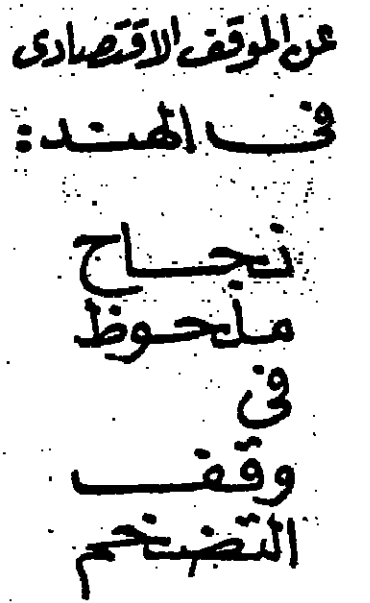 عن الموقف الاقتصادى
فى الهند :
نجاح
ملحوظ
فى
وقف
التضخم